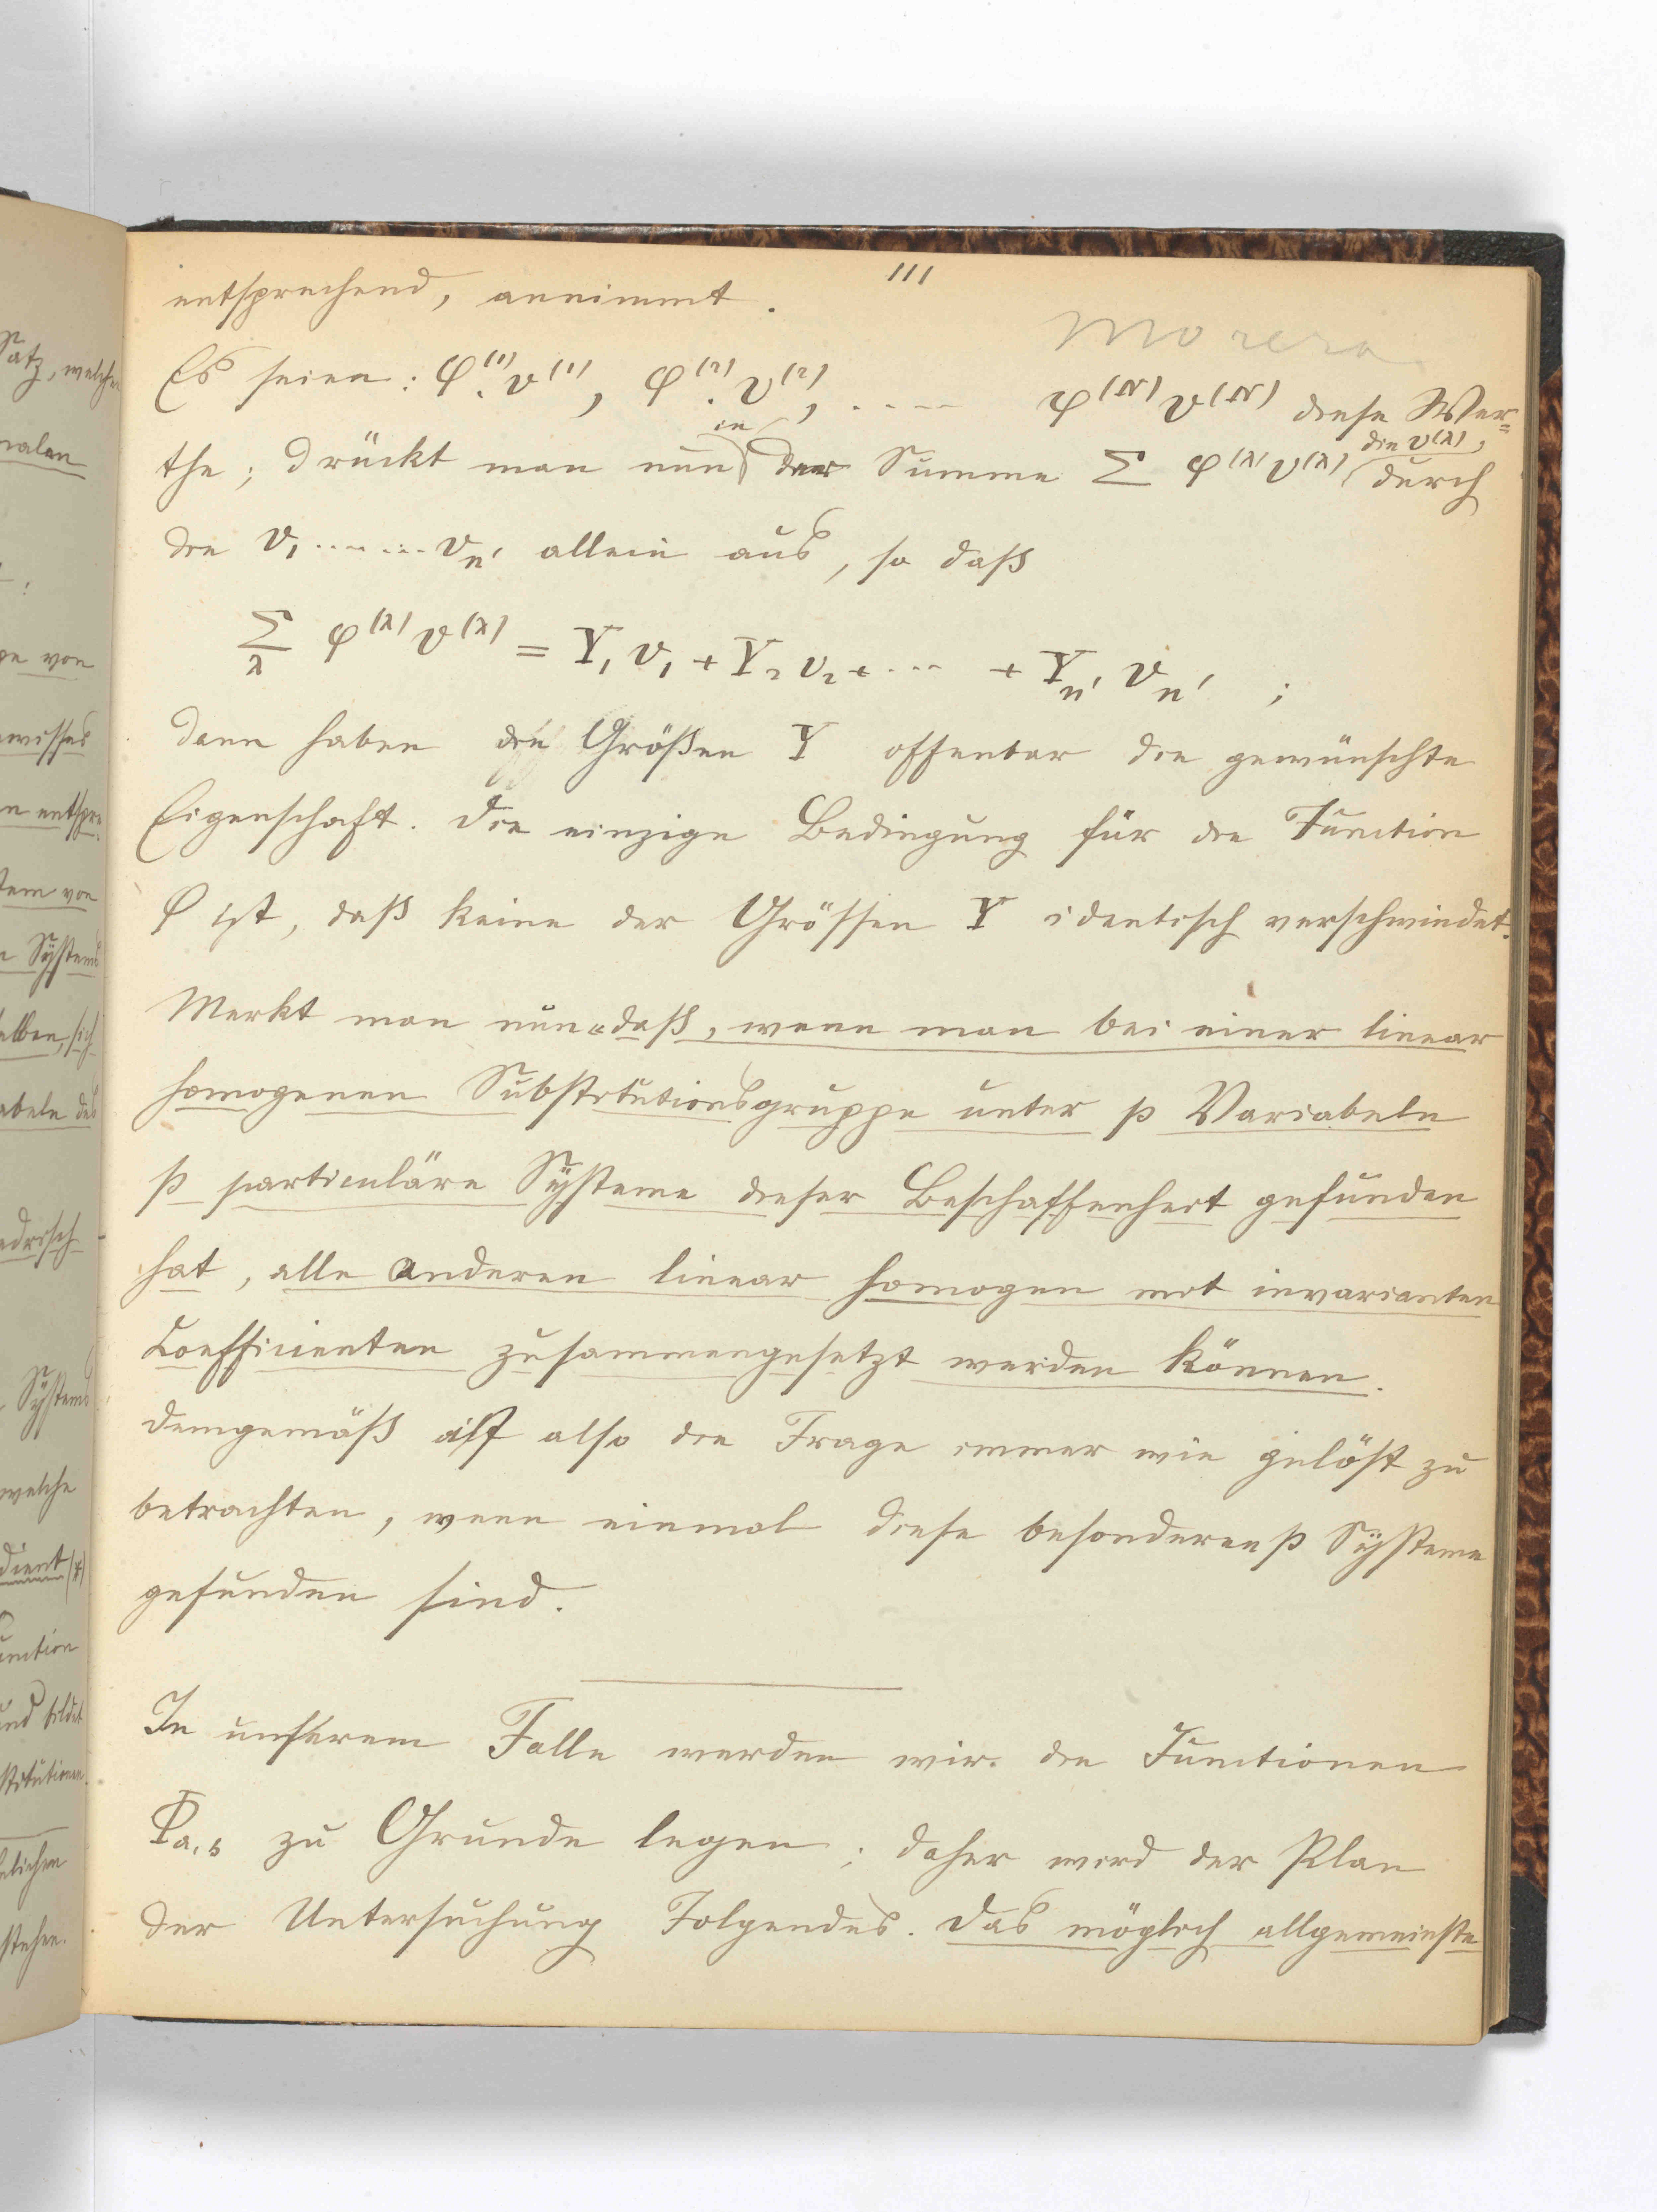 111
entsprechend, annimmt.
Morera
Es seien: φ⁽¹⁾.v⁽¹⁾, φ⁽²⁾.v⁽²⁾, ..... φ⁽ᴺ⁾v⁽ᴺ⁾ diese Wer=
in die v⁽λ⁾,
the; drückt man nun der Summe Σ φ⁽λ⁾v⁽λ⁾ durch
die v₁ ........ vₙ′ allein aus, so daß
Σ_λ φ⁽λ⁾v⁽λ⁾ = Y₁v₁ + Y₂v₂ + .... + Yₙ′ vₙ′ ;
dann haben die Größen Y offenbar die gewünschte
Eigenschaft. Die einzige Bedingung für die Function
φ ist, daß keine der Grössen Y identisch verschwindet.
Merkt man nun daß, wenn man bei einer linear
homogenen Substitutionsgruppe unter p Variabeln
p particuläre Systeme dieser Beschaffenheit gefunden
hat, alle anderen linear homogen mit invarianten
Coefficienten zusammengesetzt werden können.
Demgemäß ist also die Frage immer wie gelöst zu
betrachten, wenn einmal diese besonderen p Systeme
gefunden sind.
In unserem Falle werden wir die Functionen
Φₐ,ₛ zu Grunde legen; daher wird der Plan
der Untersuchung Folgendes. Das möglich allgemeinste